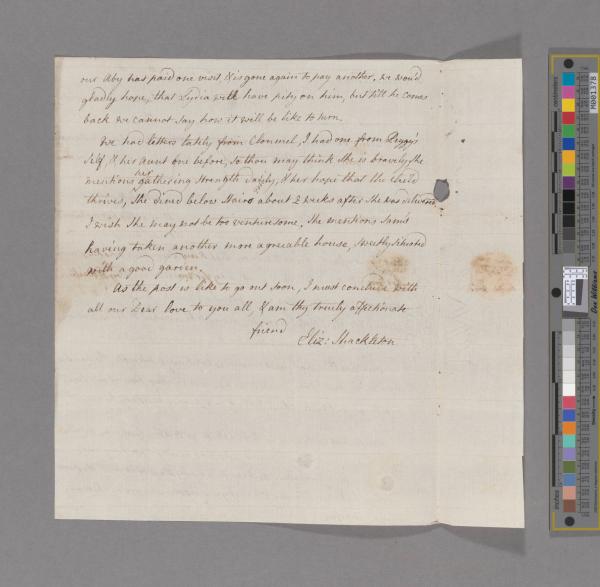 our Aby has paid one visit & is gone again to pay another, we wou'd
gladly hope, that Lydia will have pity on him, but till he comes
back we cannot say how it will be like to turn.
We had letters lately from Clonmel, I had one from Peggy's
self, & her Aunt one before, so thou may think she is bravely, she
mentions her gathering strength daily, & her hope that the child
thrives, She dined below Stairs about 2 weeks after she was deliver'd
I wish she may not be too venturesome, She mentions Sam's
having taken another more agreeable house, sweetly situated
with a good garden.
As the post is like to go out soon, I must conclude with
all our Dear love to you all, & am thy truely affectionate
friend
Eliz: Shackleton
M001378
centimeters
inches
Don Williams
Density